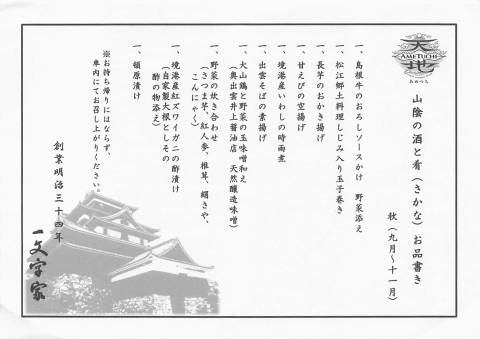 天地
AMETUCHI
あめつち
山陰の酒と肴(さかな)お品書き
秋(九月~十一月)
一、島根牛のおろしソースかけ 野菜添え
一、松江郷土料理しじみ入り玉子巻き
一、長芋のおかき揚げ
一、甘えびの空揚げ
一、境港産いわしの時雨煮
一、出雲そばの素揚げ
一、大山鶏と野菜の玉味噌和え
(奥出雲井上醤油店 天然醸造味噌)
一、野菜の炊き合わせ
(さつま芋、紅人参、椎茸、絹さや、
こんにゃく)
一、境港産紅ズワイガニの酢漬け
(自家製大根としその
酢の物添え)
一、頓原漬け
※お持ち帰りにはならず、
車内にてお召し上がりください。
創業明治三十四年
一文字家